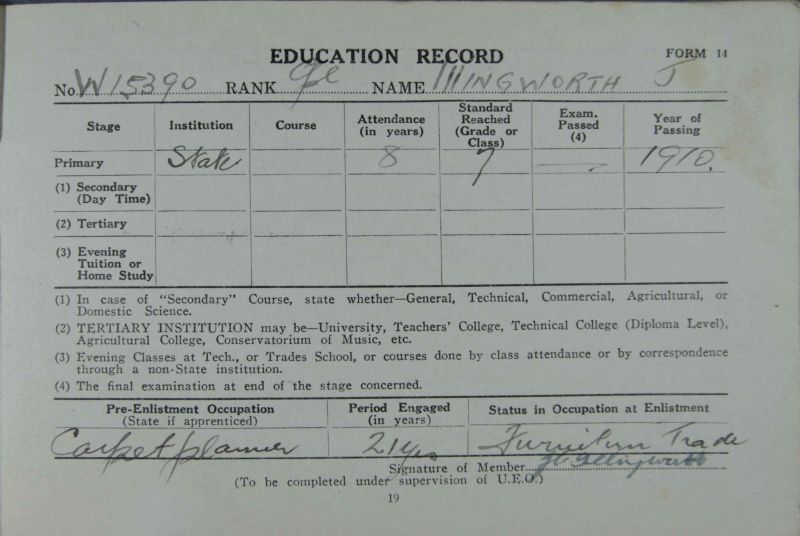 EDUCATION RECORD FORM 14
No. W15390 RANK Gfe NAME IllINGWORTH J
Stage Institution Course Attendance (in years) Standard Reached (Grade or Class) Exam. Passed (4) Year of Passing
Primary State 8 7 — 1910.
(1) Secondary (Day Time)
(2) Tertiary
(3) Evening Tuition or Home Study
(1) In case of "Secondary" Course, state whether—General, Technical, Commercial, Agricultural, or
Domestic Science.
(2) TERTIARY INSTITUTION may be—University, Teachers' College, Technical College (Diploma Level),
Agricultural College, Conservatorium of Music, etc.
(3) Evening Classes at Tech., or Trades School, or courses done by class attendance or by correspondence
through a non-State institution.
(4) The final examination at end of the stage concerned.
Pre-Enlistment Occupation (State if apprenticed) Period Engaged (in years) Status in Occupation at Enlistment
Carpet planner 21 yrs Furniture Trade
Signature of Member Illingworth
(To be completed under supervision of U.E.O.)
19